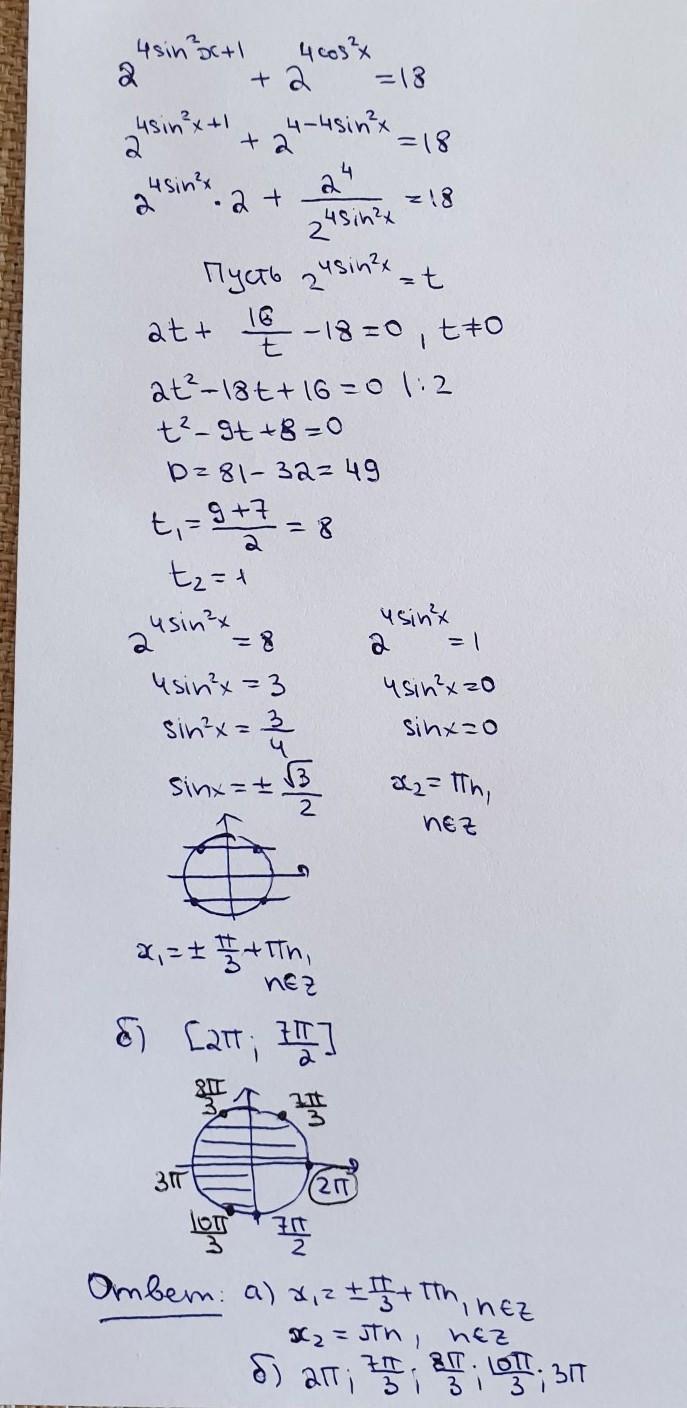 2^{4sin²x+1} + 2^{4cos²x} = 18
2^{4sin²x+1} + 2^{4-4sin²x} = 18
2^{4sin²x} · 2 + 2^4/2^{4sin²x} = 18
Пусть 2^{4sin²x} = t
2t + 16/t - 18 = 0, t≠0
2t² - 18t + 16 = 0 |:2
t² - 9t + 8 = 0
D = 81 - 32 = 49
t₁ = (9+7)/2 = 8
t₂ = 1
2^{4sin²x} = 8
4sin²x = 3
sin²x = 3/4
sinx = ± √3/2
2^{4sin²x} = 1
4sin²x = 0
sinx = 0
x₂ = πn,
n∈Z
x₁ = ± π/3 + πn,
n∈Z
б) [2π; 7π/2]
8π/3
7π/3
3π
2π
10π/3
7π/2
Ответ: а) x₁ = ± π/3 + πn, n∈Z
x₂ = πn, n∈Z
б) 2π; 7π/3; 8π/3; 10π/3; 3π